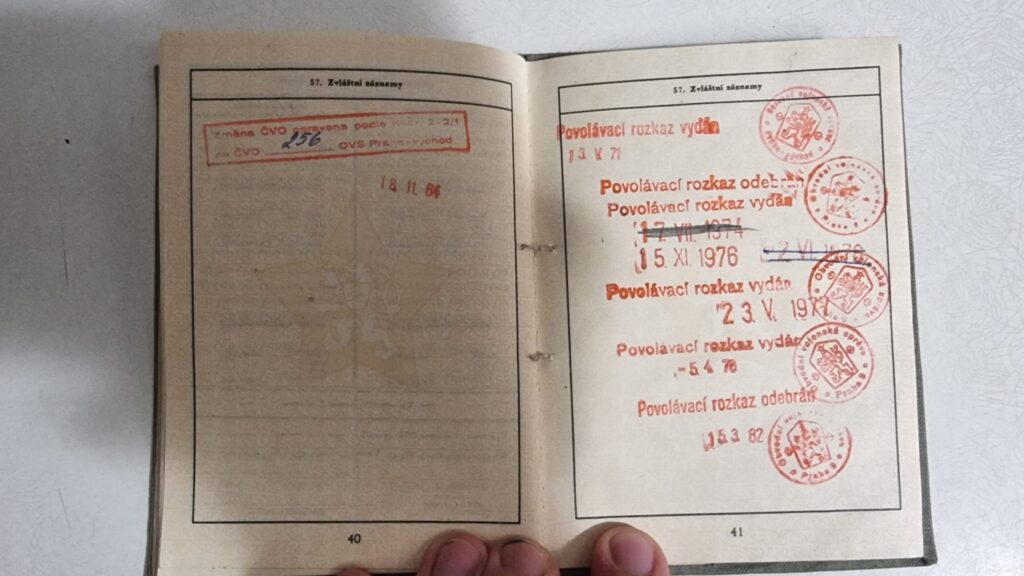 57. Zvláštní záznamy
Změna ČVO opravena podle
na ČVO 256 OVS Praha-východ
18. II. 84
40
57. Zvláštní záznamy
Povolávací rozkaz vydán
13. V. 71
Povolávací rozkaz odebrán
Povolávací rozkaz vydán
17. VII. 1974
15. XI. 1976
Povolávací rozkaz vydán
23. V. 1977
Povolávací rozkaz vydán
-5. 4. 78
Povolávací rozkaz odebrán
15. 3. 82
Obvodní vojenská správa
Praha 8
41